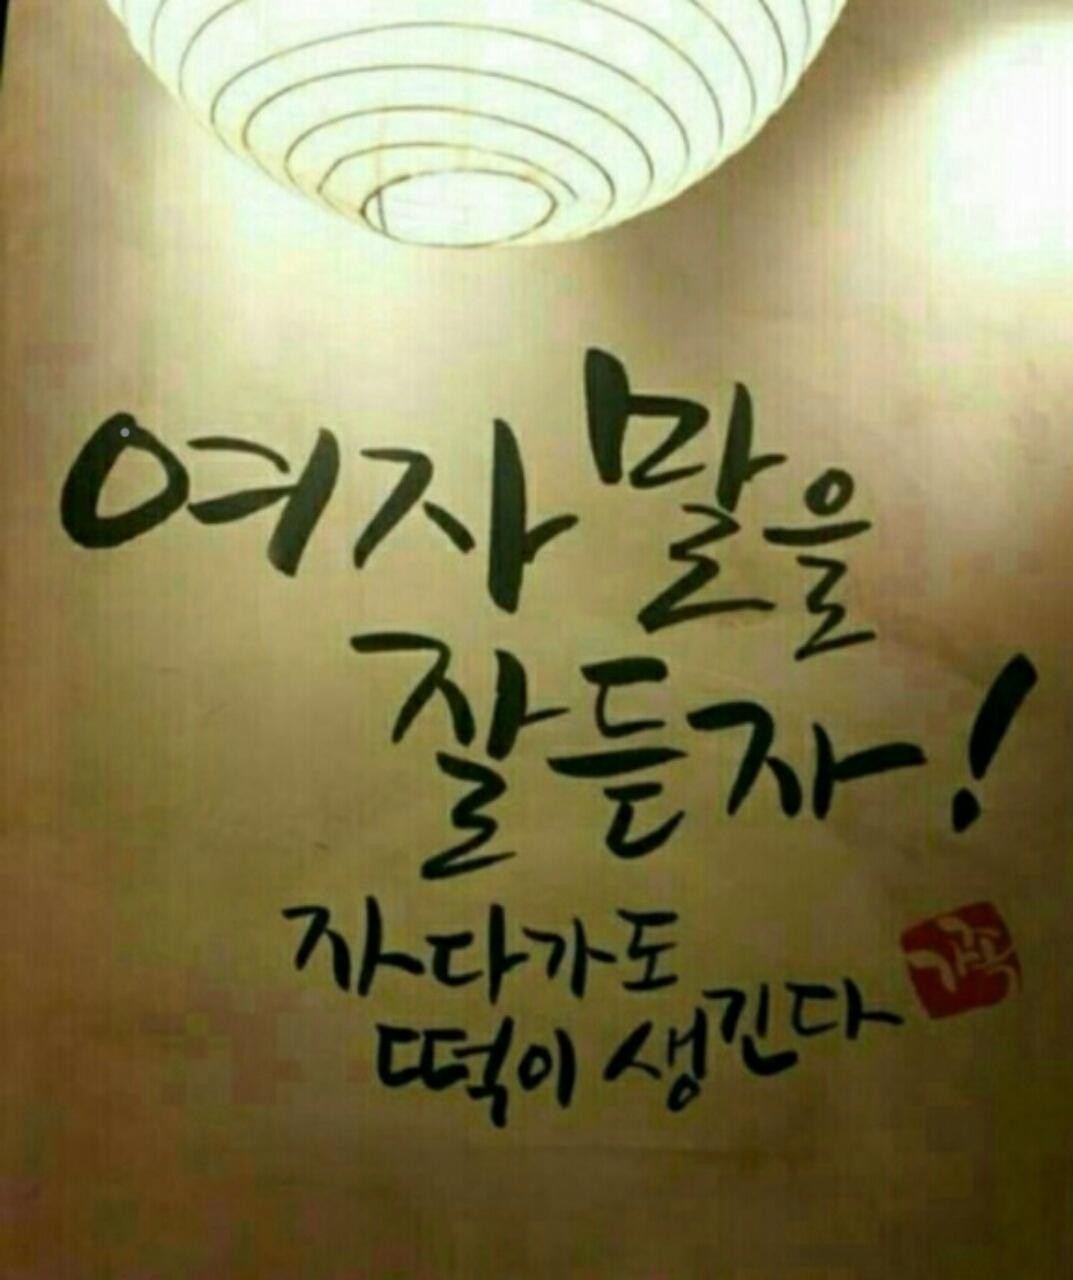 여자 말을
잘듣자!
자다가도
떡이 생긴다
가족